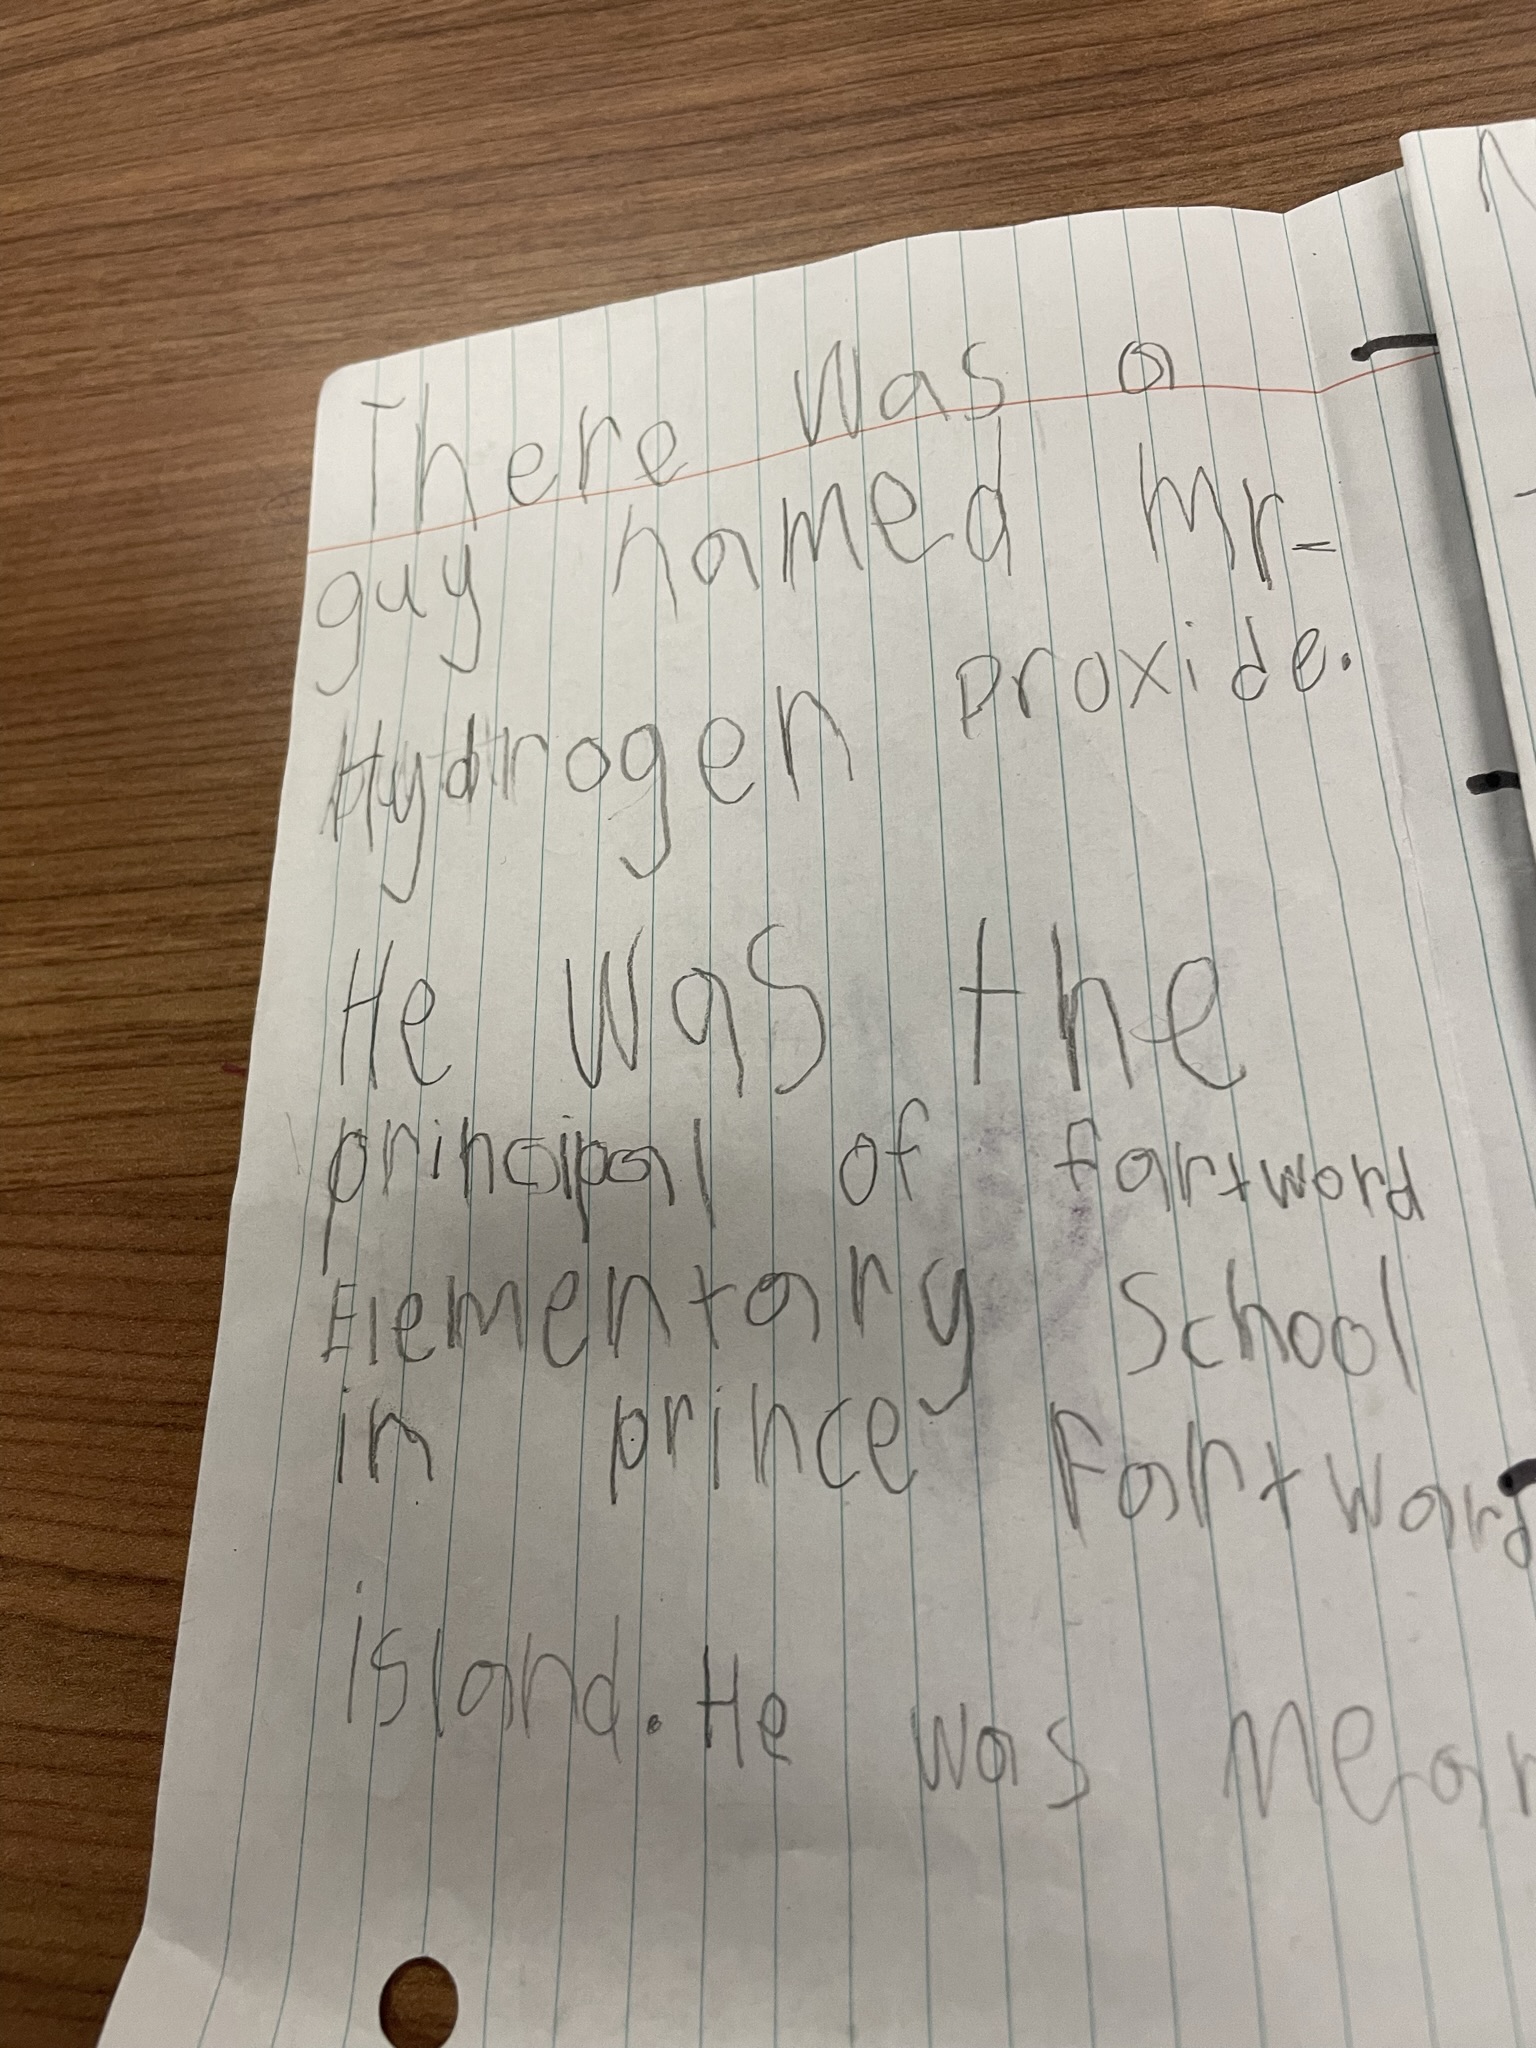 There was a
guy named Mr-
Hydrogen proxide.
He was the
principal of fartword
Elementary School
in prince Fartward
island. He was Mean